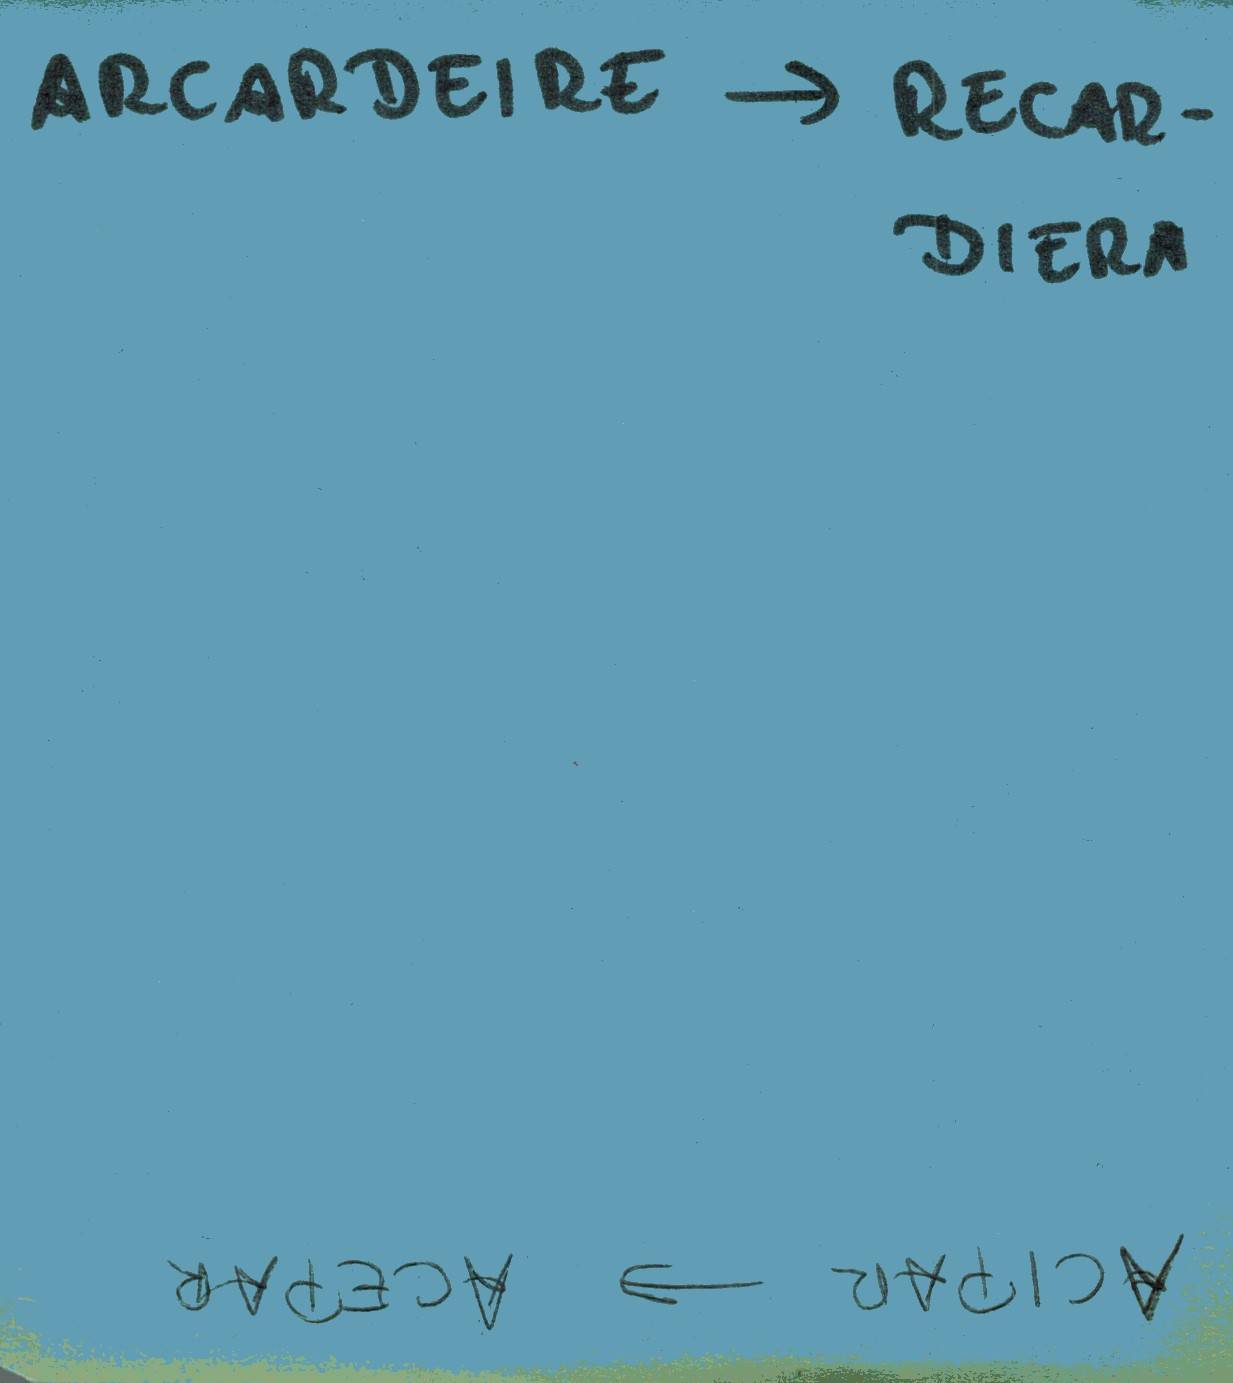 ARCARDEIRE → RECAR-
DIERA
ACIPAR → ACEPAR